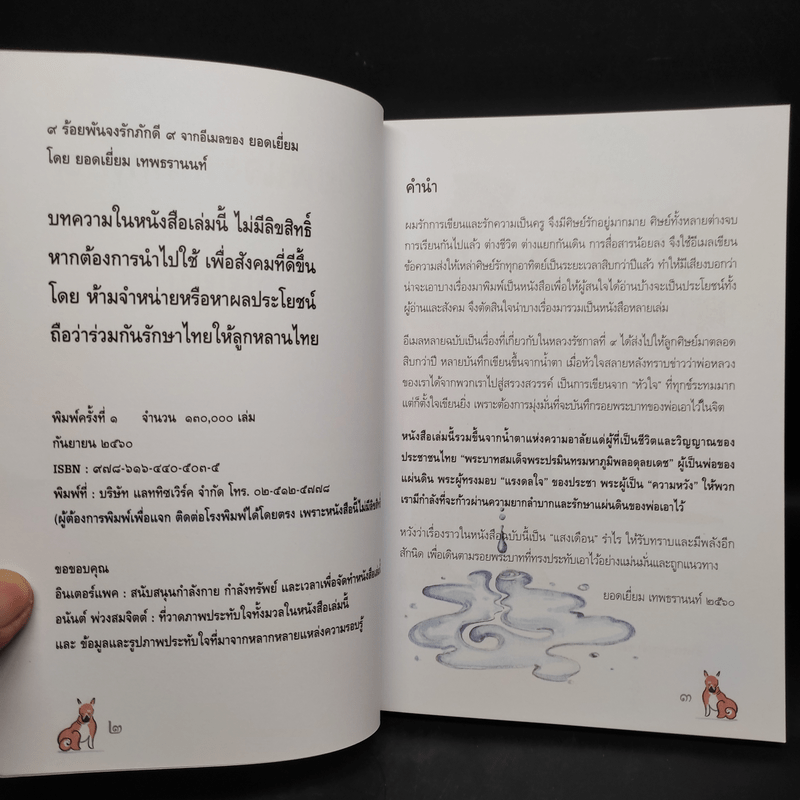 ๙ ร้อยพันจงรักภักดี ๙ จากอีเมลของ ยอดเยี่ยม
โดย ยอดเยี่ยม เทพธรานนท์
บทความในหนังสือเล่มนี้ ไม่มีลิขสิทธิ์
หากต้องการนำไปใช้ เพื่อสังคมที่ดีขึ้น
โดย ห้ามจำหน่ายหรือหาผลประโยชน์
ถือว่าร่วมกันรักษาไทยให้ลูกหลานไทย
พิมพ์ครั้งที่ ๑ จำนวน ๑๓๐,๐๐๐ เล่ม
กันยายน ๒๕๖๐
ISBN : ๙๗๘-๖๑๖-๔๔๐-๕๐๓-๕
พิมพ์ที่ : บริษัท แลททิซเวิร์ค จำกัด โทร. ๐๒-๔๑๒-๕๗๗๘
(ผู้ต้องการพิมพ์เพื่อแจก ติดต่อโรงพิมพ์ได้โดยตรง เพราะหนังสือนี้ไม่มีลิขสิทธิ์
ขอขอบคุณ
อินเตอร์แพค : สนับสนุนกำลังกาย กำลังทรัพย์ และเวลาเพื่อจัดทำหนังสือเล่มนี้
อนันต์ พ่วงสมจิตต์ : ที่วาดภาพประทับใจทั้งมวลในหนังสือเล่มนี้
และ ข้อมูลและรูปภาพประทับใจที่มาจากหลากหลายแหล่งความรอบรู้
๒
คำนำ
ผมรักการเขียนและรักความเป็นครู จึงมีศิษย์รักอยู่มากมาย ศิษย์ทั้งหลายต่างจบ
การเรียนกันไปแล้ว ต่างชีวิต ต่างแยกกันเดิน การสื่อสารน้อยลง จึงใช้อีเมลเขียน
ข้อความส่งให้เหล่าศิษย์รักทุกอาทิตย์เป็นระยะเวลาสิบกว่าปีแล้ว ทำให้มีเสียงบอกว่า
น่าจะเอาบางเรื่องมาพิมพ์เป็นหนังสือเพื่อให้ผู้สนใจได้อ่านบ้างจะเป็นประโยชน์ทั้ง
ผู้อ่านและสังคม จึงตัดสินใจนำบางเรื่องมารวมเป็นหนังสือหลายเล่ม
อีเมลหลายฉบับเป็นเรื่องที่เกี่ยวกับในหลวงรัชกาลที่ ๙ ได้ส่งไปให้ลูกศิษย์มาตลอด
สิบกว่าปี หลายบันทึกเขียนขึ้นจากน้ำตา เมื่อหัวใจสลายหลังทราบข่าวว่าพ่อหลวง
ของเราได้จากพวกเราไปสู่สรวงสวรรค์ เป็นการเขียนจาก “หัวใจ” ที่ทุกข์ระทมมาก
แต่ก็ตั้งใจเขียนยิ่ง เพราะต้องการมุ่งมั่นที่จะบันทึกรอยพระบาทของพ่อเอาไว้ในจิต
หนังสือเล่มนี้รวมขึ้นจากน้ำตาแห่งความอาลัยแด่ผู้ที่เป็นชีวิตและวิญญาณของ
ประชาชนไทย “พระบาทสมเด็จพระปรมินทรมหาภูมิพลอดุลยเดช” ผู้เป็นพ่อของ
แผ่นดิน พระผู้ทรงมอบ “แรงดลใจ” ของประชา พระผู้เป็น “ความหวัง” ให้พวก
เรามีกำลังที่จะก้าวผ่านความยากลำบากและรักษาแผ่นดินของพ่อเอาไว้
หวังว่าเรื่องราวในหนังสือฉบับนี้เป็น “แสงเดือน” รำไร ให้รับทราบและมีพลังอีก
สักนิด เพื่อเดินตามรอยพระบาทที่ทรงประทับเอาไว้อย่างแม่นมั่นและถูกแนวทาง
ยอดเยี่ยม เทพธรานนท์ ๒๕๖๐
๓